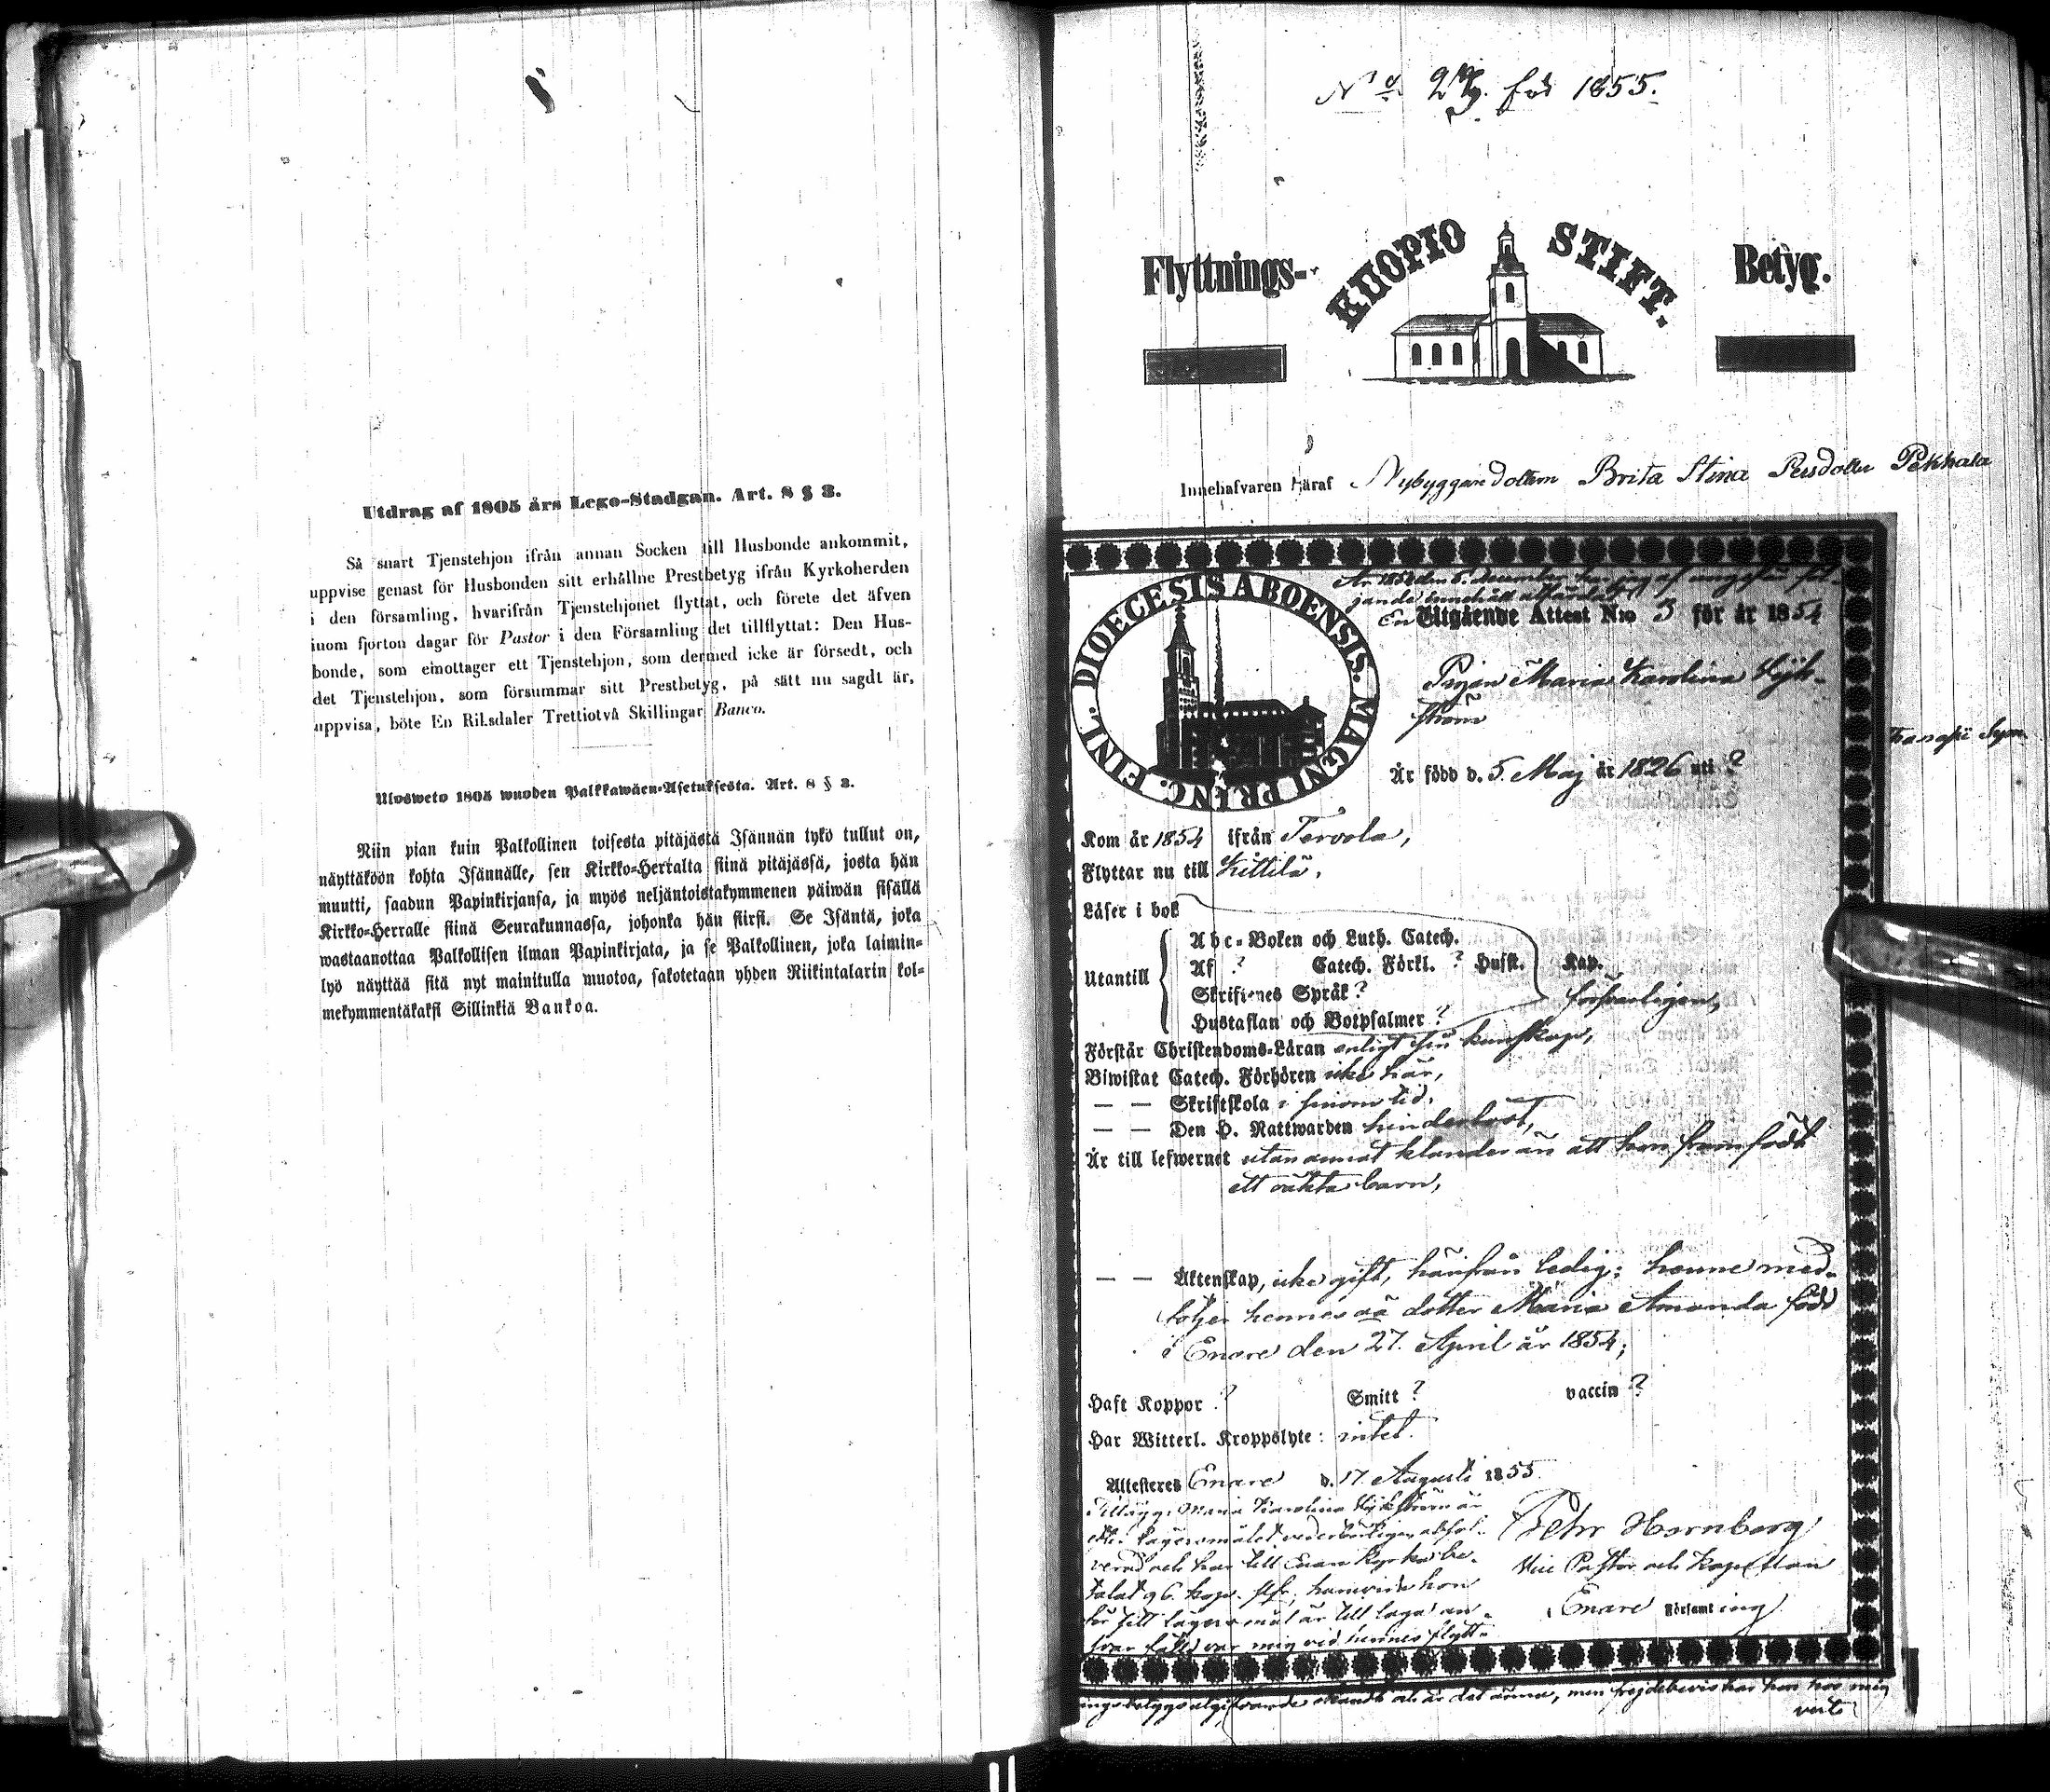 Utdrag af 1805 års Lego-Stadgan. Art. 8 § 3.
Så snart Tjenstehjon ifrån annan Socken till Husbonde ankommit,
uppvise genast för Husbonden sitt erhållne Prestbetyg ifrån Kyrkoherden
i den församling, hvarifrån Tjenstehjonet flyttat, och förete det äfven
inom fjorton dagar för Pastor i den Församling det tillflyttat: Den Hus-
bonde, som emottager ett Tjenstehjon, som dermed icke är försedt, och
det Tjenstehjon, som försummar sitt Prestbetyg, på sätt nu sagdt är,
uppvisa, böte En Riksdaler Trettiotvå Skillingar Banco.
Ulosweto 1805 wuoden Palkkawäen-Asetuksesta. Art. 8 § 3.
Niin pian kuin Palkollinen toisesta pitäjästä Isännän tykö tullut on,
näyttäköön kohta Isännälle, sen Kirkko-Herralta siinä pitäjässä, josta hän
muutti, saadun Papinkirjansa, ja myös neljäntoistakymmenen päiwän sisällä
Kirkko-Herralle siinä Seurakunnassa, johonka hän siirsi. Se Isäntä, joka
wastaanottaa Palkollisen ilman Papinkirjata, ja se Palkollinen, joka laimin-
lyö näyttää sitä nyt mainitulla muotoa, sakotetaan yhden Riikintalarin kol-
mekymmentäkaksi Sillinkiä Bankoa.
för 1855.
Flyttnings- KUOPIO STIFT. Betyg.
Innehafvaren häraf Nybyggaredottren Brita Stina Persdotter Pekkala
DIOECESIS ABOENSIS. MAGNI PRINC. FINL.
År 1854 den 6. December har jag af mig föl-
jande innehåll
En Utgående Attest N:o 3 för år 1854
Pigan Maria Karolina Hjk-
ström
Är född d. 5. Maj år 1826 uti ?
Kom år 1854 ifrån Tervola,
Flyttar nu till Kittilä,
Läser i bok
Utantill
Abc-Boken och Luth. Catech.
Af ? Catech. Förkl. ? Husst. Kap.
Skriftenes Språk ? försvarligen,
Hustaflan och Botpsalmer ?
Förstår Christendoms-Läran enligt sin kunskap,
Biwistat Catech. Förhören icke här,
— — Skriftskola i sinom tid,
— — Den H. Nattwarden hinderlöst,
Är till lefwernet utan annat klander än att hon framfödt
ett oäkta barn,
— — Äktenskap, icke gift, härifrån ledig; henne med-
följer hennes oä dotter Maria Amanda född
i Enare den 27. April år 1854;
Haft Koppor ? Smitt ? vaccin ?
Har Witterl. Kroppslyte: intet.
Attesteres Enare d. 17 Augusti 1855
Tillägg: Maria Karolina är
efter lägersmålet vederbörligen absol-
verad och har till Enare kyrka be-
talat 96. kop. slfr; huruvida hon
för sitt lägersmål är till laga an-
svar fälld var mig vid hennes flytt-
Petr Hornborg
Vice Pastor och Kapellan
i Enare Församling
ningsbetygs utgifvande okändt och är det ännu, men frejdebevis har hon hos mig